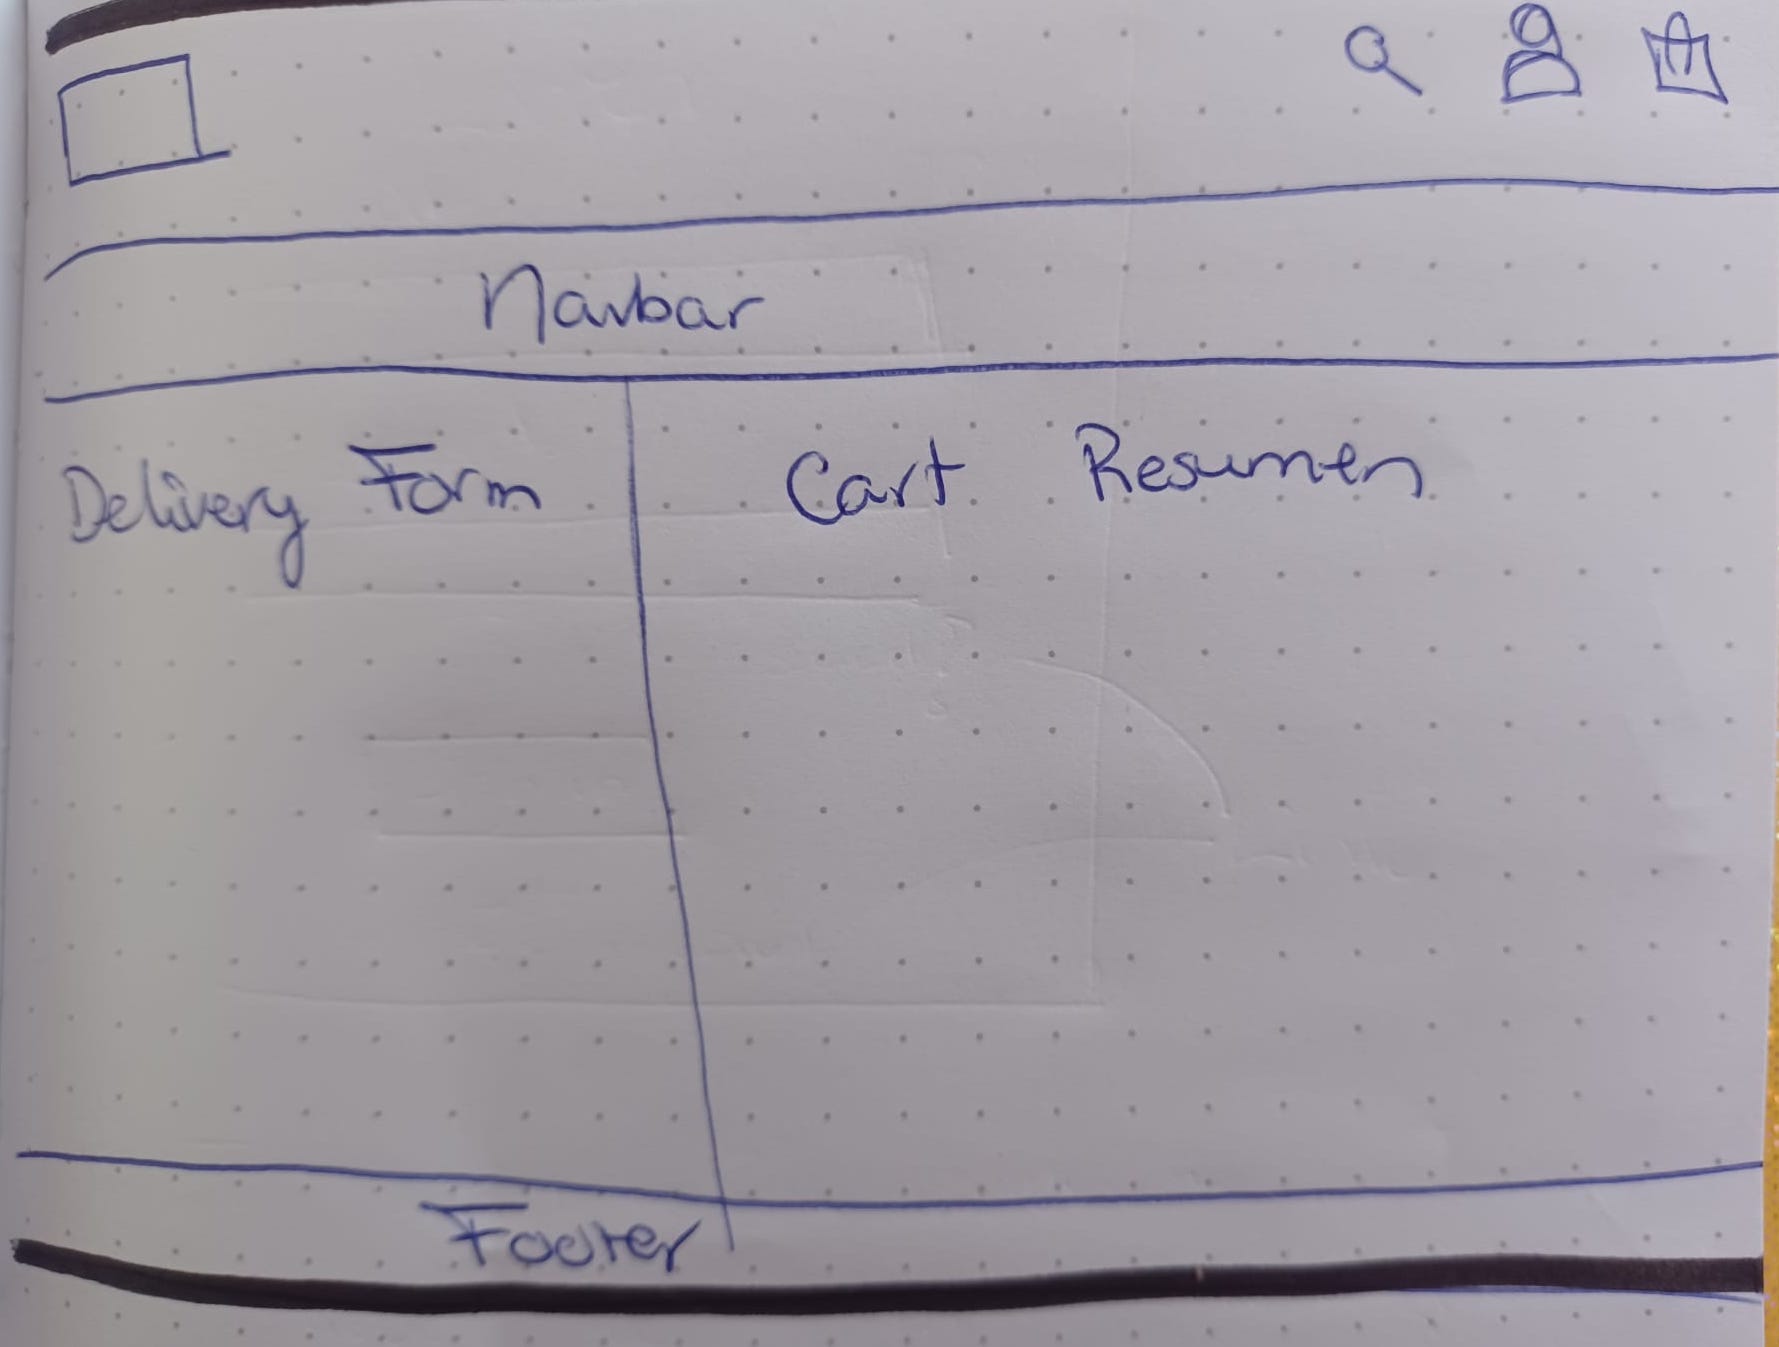 Navbar
Delivery Form
Cart Resumen
Footer